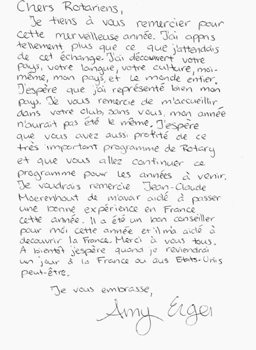 Chers Rotariens,
Je tiens à vous remercier pour
cette merveilleuse année. J'ai appris
tellement plus que ce que j'attendais
de cet échange. J'ai découvert votre
pays, votre langue, votre culture, moi-
même, mon pays, et le monde entier.
J'espère que j'ai représenté bien mon
pays. Je vous remercie de m'arcueillir
dans votre club, sans vous, mon année
n'aurait pas été le même. J'espère
que vous avez aussi profité de ce
très important programme de Rotary
et que vous allez continuer ce
programme pour les années à venir.
Je voudrais remercie Jean-Claude
Moerenhout de m'avoir aidé à passer
une bonne expérience en France,
cette année. Il a été un bon conseiller
pour moi cette année et il m'a aidé à
decouvrir la France. Merci à vous tous.
A bientôt j'espère quand je reviendrai
un jour à la France ou aus Etats-Unis
peut-être.
Je vous embrasse,
Amy